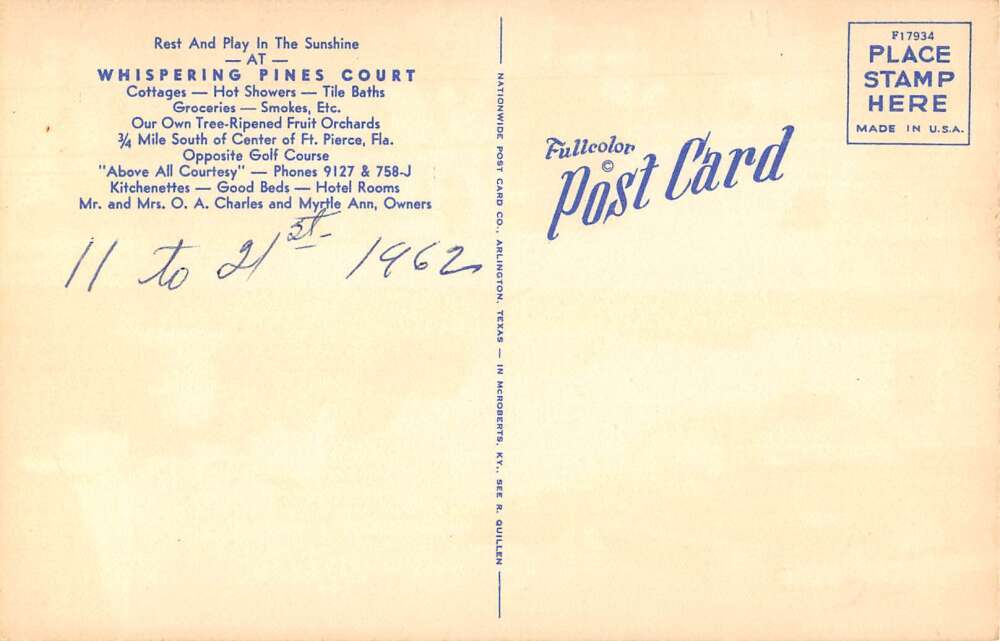 Rest And Play In The Sunshine
— AT —
WHISPERING PINES COURT
Cottages — Hot Showers — Tile Baths
Groceries — Smokes, Etc.
Our Own Tree-Ripened Fruit Orchards
¾ Mile South of Center of Ft. Pierce, Fla.
Opposite Golf Course
"Above All Courtesy" — Phones 9127 & 758-J
Kitchenettes — Good Beds — Hotel Rooms
Mr. and Mrs. O. A. Charles and Myrtle Ann, Owners
11 to 21st 1962
NATIONWIDE POST CARD CO., ARLINGTON, TEXAS — IN MCROBERTS, KY., SEE R. QUILLEN
Fullcolor
©
Post Card
F17934
PLACE
STAMP
HERE
MADE IN U.S.A.